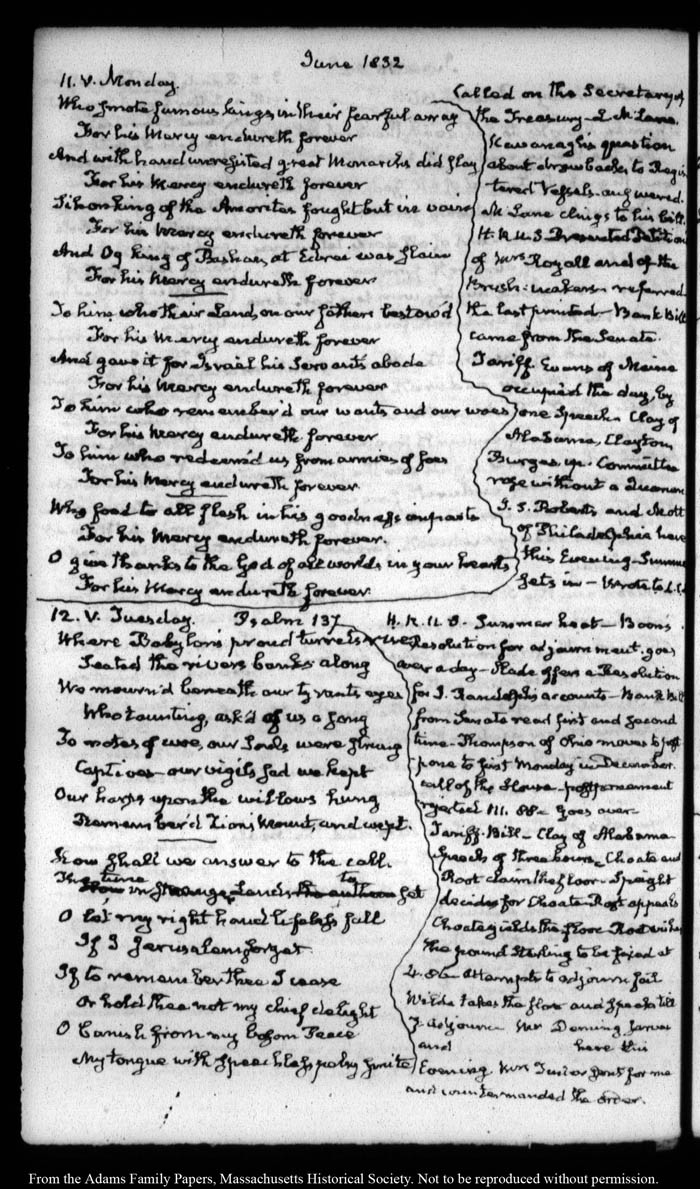 June 1832
11. V. Monday.
Who smote famous kings in their fearful array
For his Mercy endureth forever
And with hand unresisted great Monarchs did slay
For his Mercy endureth forever
Sihon king of the Amorites fought but in vain
For his Mercy endureth forever
And Og king of Bashan, at Edrei was slain
For his Mercy endureth forever
To him, who their Land, on our fathers bestow'd
For his Mercy endureth forever
And gave it for Israel his Servants abode
For his Mercy endureth forever
To him who remember'd our wants and our woes
For his Mercy endureth forever
To him who redeem'd us from armies of foes
For his Mercy endureth forever.
Who food to all flesh in his goodness imparts
For his Mercy endureth forever.
O give thanks to the God of all worlds in your hearts
For his Mercy endureth forever.
Called on the Secretary of
the Treasury - L. McLane.
Kavanagh's question
about drawbacks to Regis
tered Vessels - answered.
McLane clings to his bill.
H.R.U.S. Presented Petition
of Mrs Royall and of the
Brush-makers - referred
the last printed - Bank Bill
came from the Senate.
Tariff. Evans of Maine
occupied the day, by
one Speech. Clay of
Alabama, Clayton
Burges, up. Committee
rose without a Quorum
J. S. Roberts and Mott
of Philadelphia here
this Evening - Summer
sets in - Wrote to
12. V. Tuesday. Psalm 137
Where Babylon's proud turrets rise
Seated the rivers banks along
We mourn'd beneath our tyrants eyes
Who taunting, ask'd of us a song
To notes of woe, our Souls were strung
Captives - our vigils sad we kept
Our harps upon the willows hung
Remember'd Zions Mount, and wept.
How shall we answer to the call.
The tune to
in strange Land
O let my right hand lifeless fall
If I Jerusalem forget.
If to remember thee I cease
Or hold thee not my chief delight
O banish from my bosom Peace
My tongue with speechless palsy smite
H.R.U.S. Summer heat - Boon's
Resolution for adjournment. goes
over a day - Slade offers a Resolution
for J. Randolph's accounts - Bank Bill
from Senate read first and second
time - Thompson of Ohio moves to post
pone to first Monday in December.
call of the House - postponement
rejected 111. 88 - Goes over -
Tariff-Bill - Clay of Alabama
Speech of three hours - Choate and
Root claim the floor - Speight
decides for Choate - Root appeals
Choate yields the floor - Root
the pound Sterling to be fixed at
4.80 - Attempts to adjourn fail
Wilde takes the floor and speaks till
adjourn Mr Deming
and here this
Evening. Mrs for me
and countermanded the order.
From the Adams Family Papers, Massachusetts Historical Society. Not to be reproduced without permission.